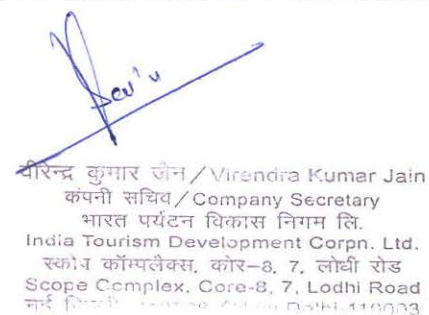 वीरेन्द्र कुमार जैन/Virendra Kumar Jain
कंपनी सचिव/Company Secretary
भारत पर्यटन विकास निगम लि.
India Tourism Development Corpn. Ltd.
स्कोप कॉम्पलैक्स, कोर-8, 7, लोधी रोड
Scope Complex, Core-8, 7, Lodhi Road
नई Delhi-110003